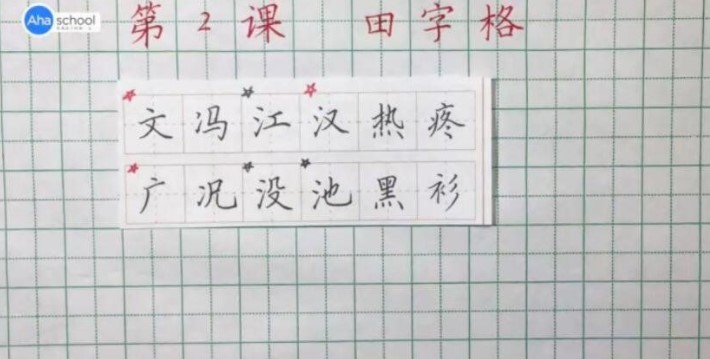 Aha school
第2课 田字格
文冯江汉热疼
广况没池黑衫